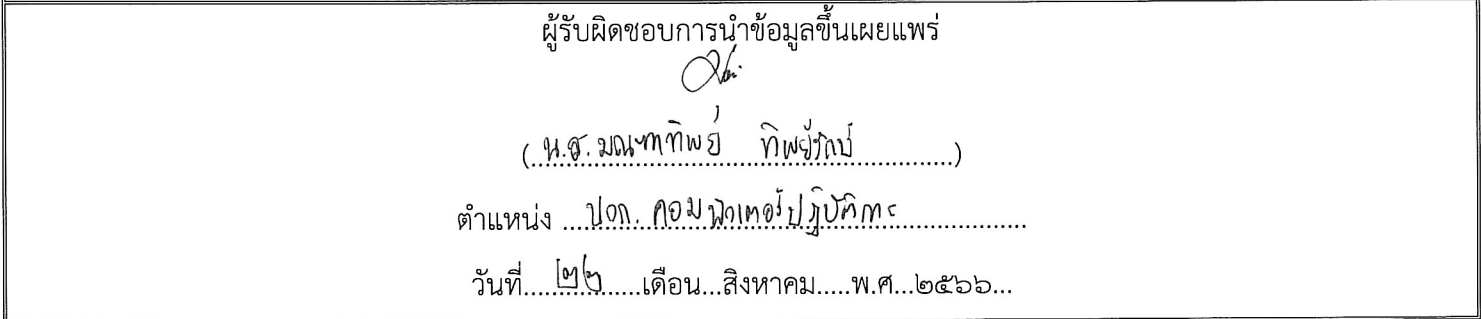 ผู้รับผิดชอบการนำข้อมูลขึ้นเผยแพร่
(น.ส. มณฑาทิพย์ ทิพย์รักษ์)
ตำแหน่ง ... คอมพิวเตอร์ปฏิบัติการ
วันที่.....๒๒.....เดือน...สิงหาคม.....พ.ศ...๒๕๖๖...